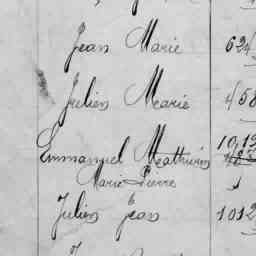 Jean Marie 624
Julien Marie 458
Emmanuel Mathurin 1012
Marie Pierre
Julien Jean 1012